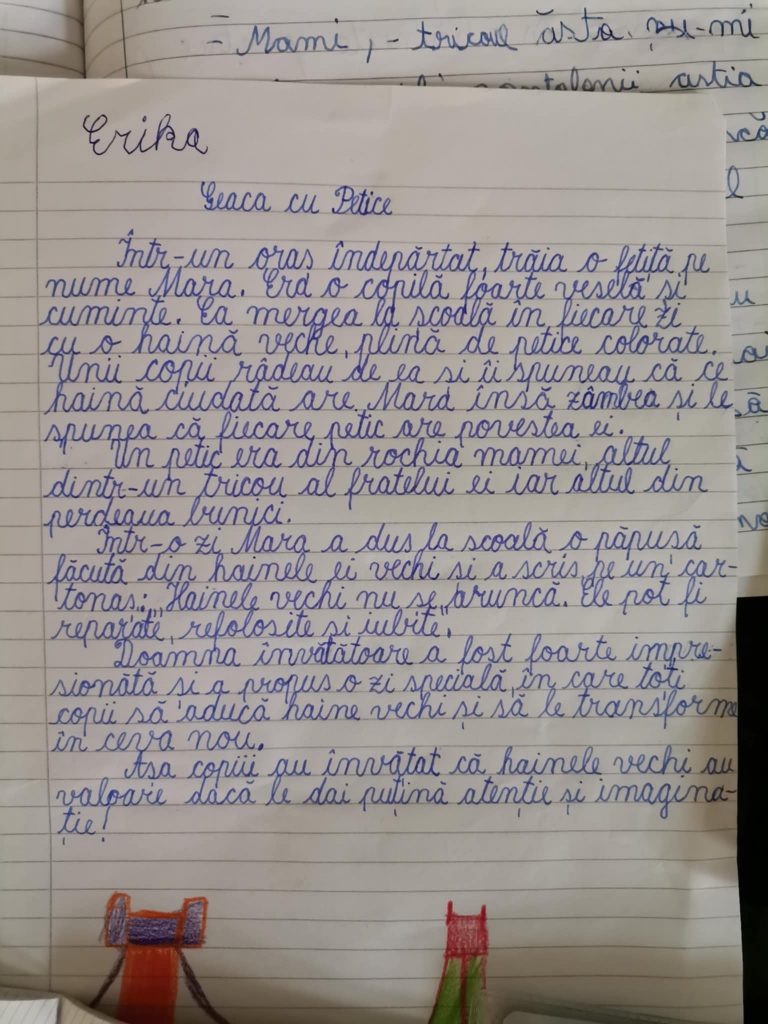 - Mami, - tricoul ăsta
pantalonii aștia
Erika
Geaca cu Petice
Într-un oraș îndepărtat, trăia o fetiță pe
nume Mara. Era o copilă foarte veselă și
cuminte. Ea mergea la școală în fiecare zi
cu o haină veche, plină de petice colorate.
Unii copii râdeau de ea și îi spuneau că ce
haină ciudată are. Mara însă zâmbea și le
spunea că fiecare petic are povestea ei.
Un petic era din rochia mamei, altul
dintr-un tricou al fratelui ei iar altul din
perdeaua bunici.
Într-o zi Mara a dus la școală o păpușă
făcută din hainele ei vechi și a scris pe un car-
tonaș: „Hainele vechi nu se aruncă. Ele pot fi
reparate, refolosite și iubite".
Doamna învățătoare a fost foarte impre-
sionătă și a propus o zi specială, în care toți
copii să aducă haine vechi și să le transforme
în ceva nou.
Așa copiii au învățat că hainele vechi au
valoare dacă le dai puțină atenție și imagina-
ție!